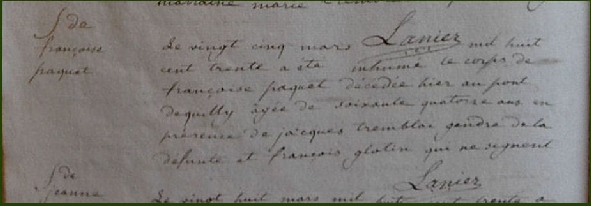 S de
françoise
paquet
Lanier
Le vingt cinq mars mil huit
cent trente a été inhumé le corps de
françoise paquet décédée hier au pont
dequilly agée de soixante quatorze ans en
presence de jacques tremblai gendre de la
defunte et françois glotin qui ne signent
Lanier
S de
jeanne
Le vingt huit mars mil huit cent trente a